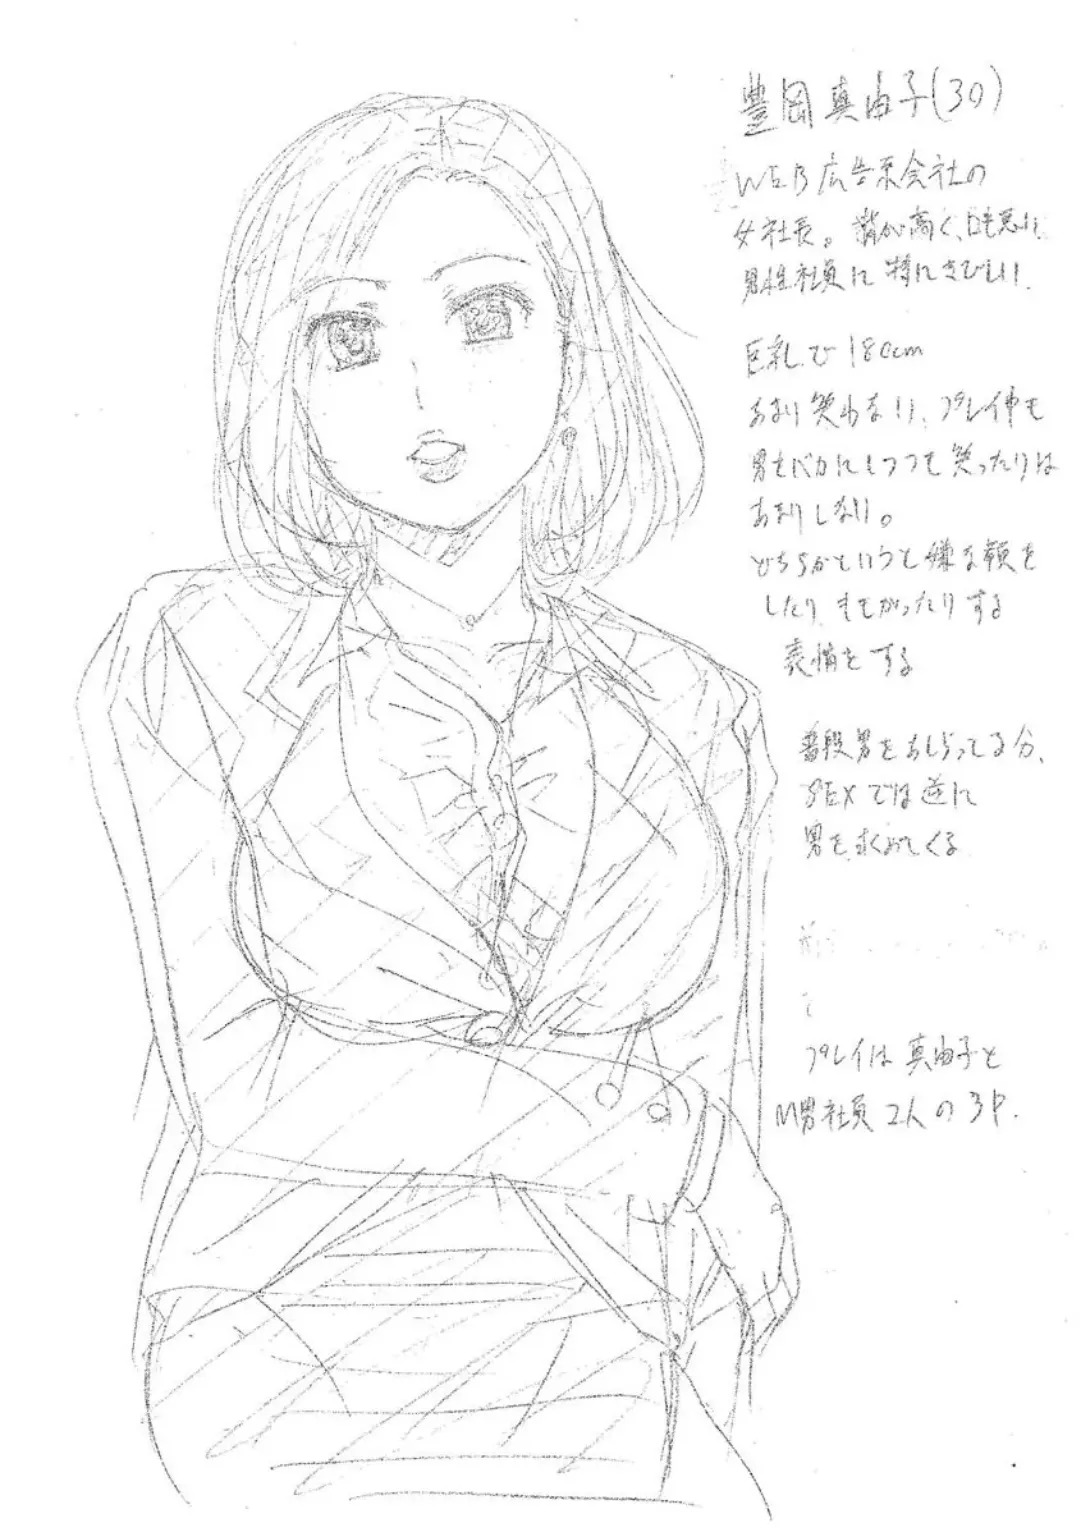 豊岡真由子(30)
WEB広告系会社の
女社長。背が高く、口も悪い。
男性社員に特にきびしい。
巨乳で180cm
あまり笑わない、プレイ中も
男をバカにしつつも笑ったりは
あまりしない。
どちらかというと嫌な顔を
したり、すする
表情をする
普段男をあしらってる分、
SEXでは逆に
男を求めてくる
プレイは真由子と
M男社員2人の3P.